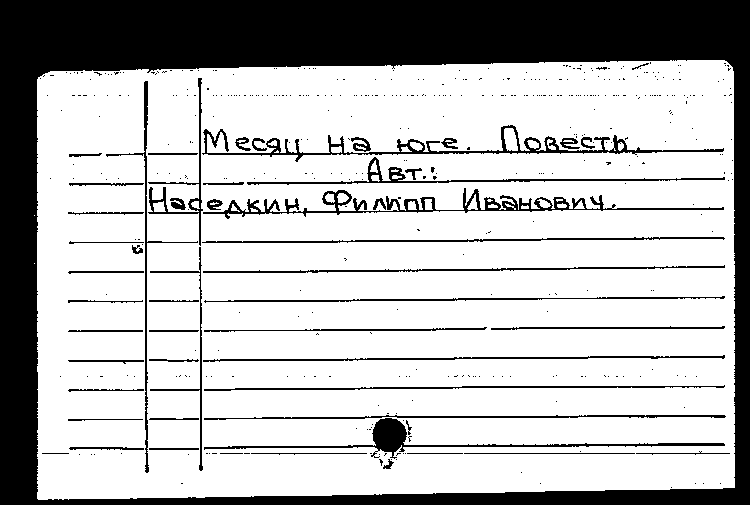 Месяц на юге. Повесть.
Авт.:
Наседкин, Филипп Иванович.